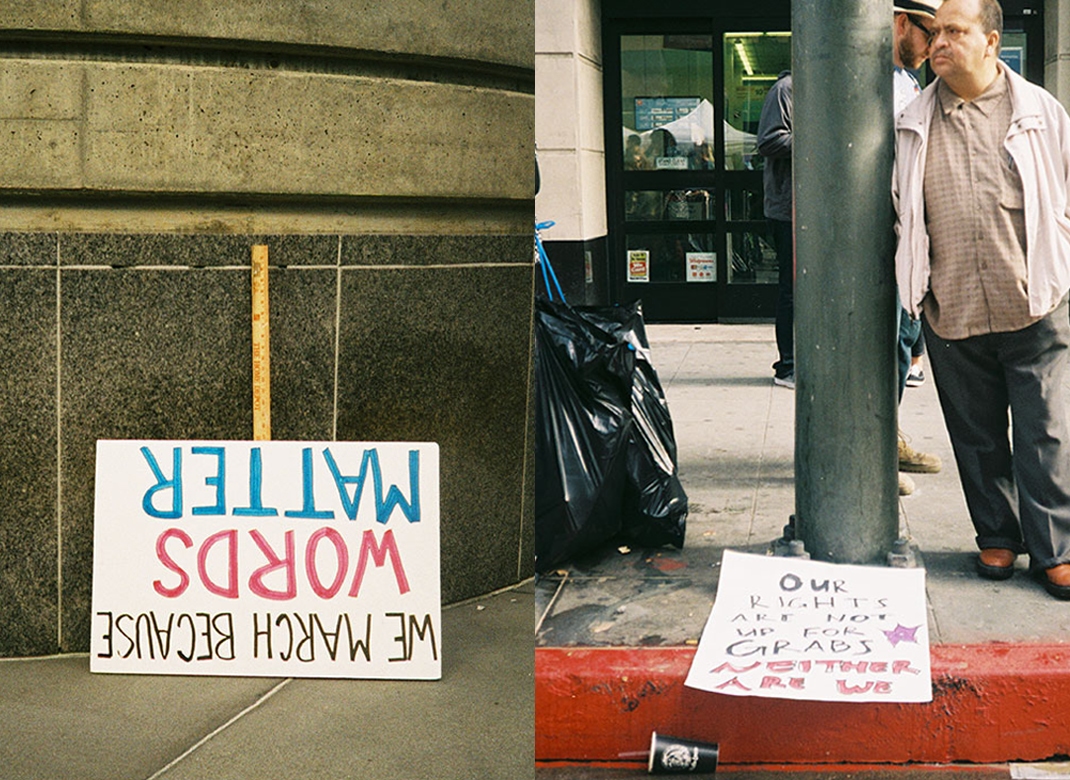 WE MARCH BECAUSE
WORDS
MATTER
THE HOME DEPOT
OUR
RIGHTS
ARE NOT
UP FOR
GRABS
NEITHER
ARE WE